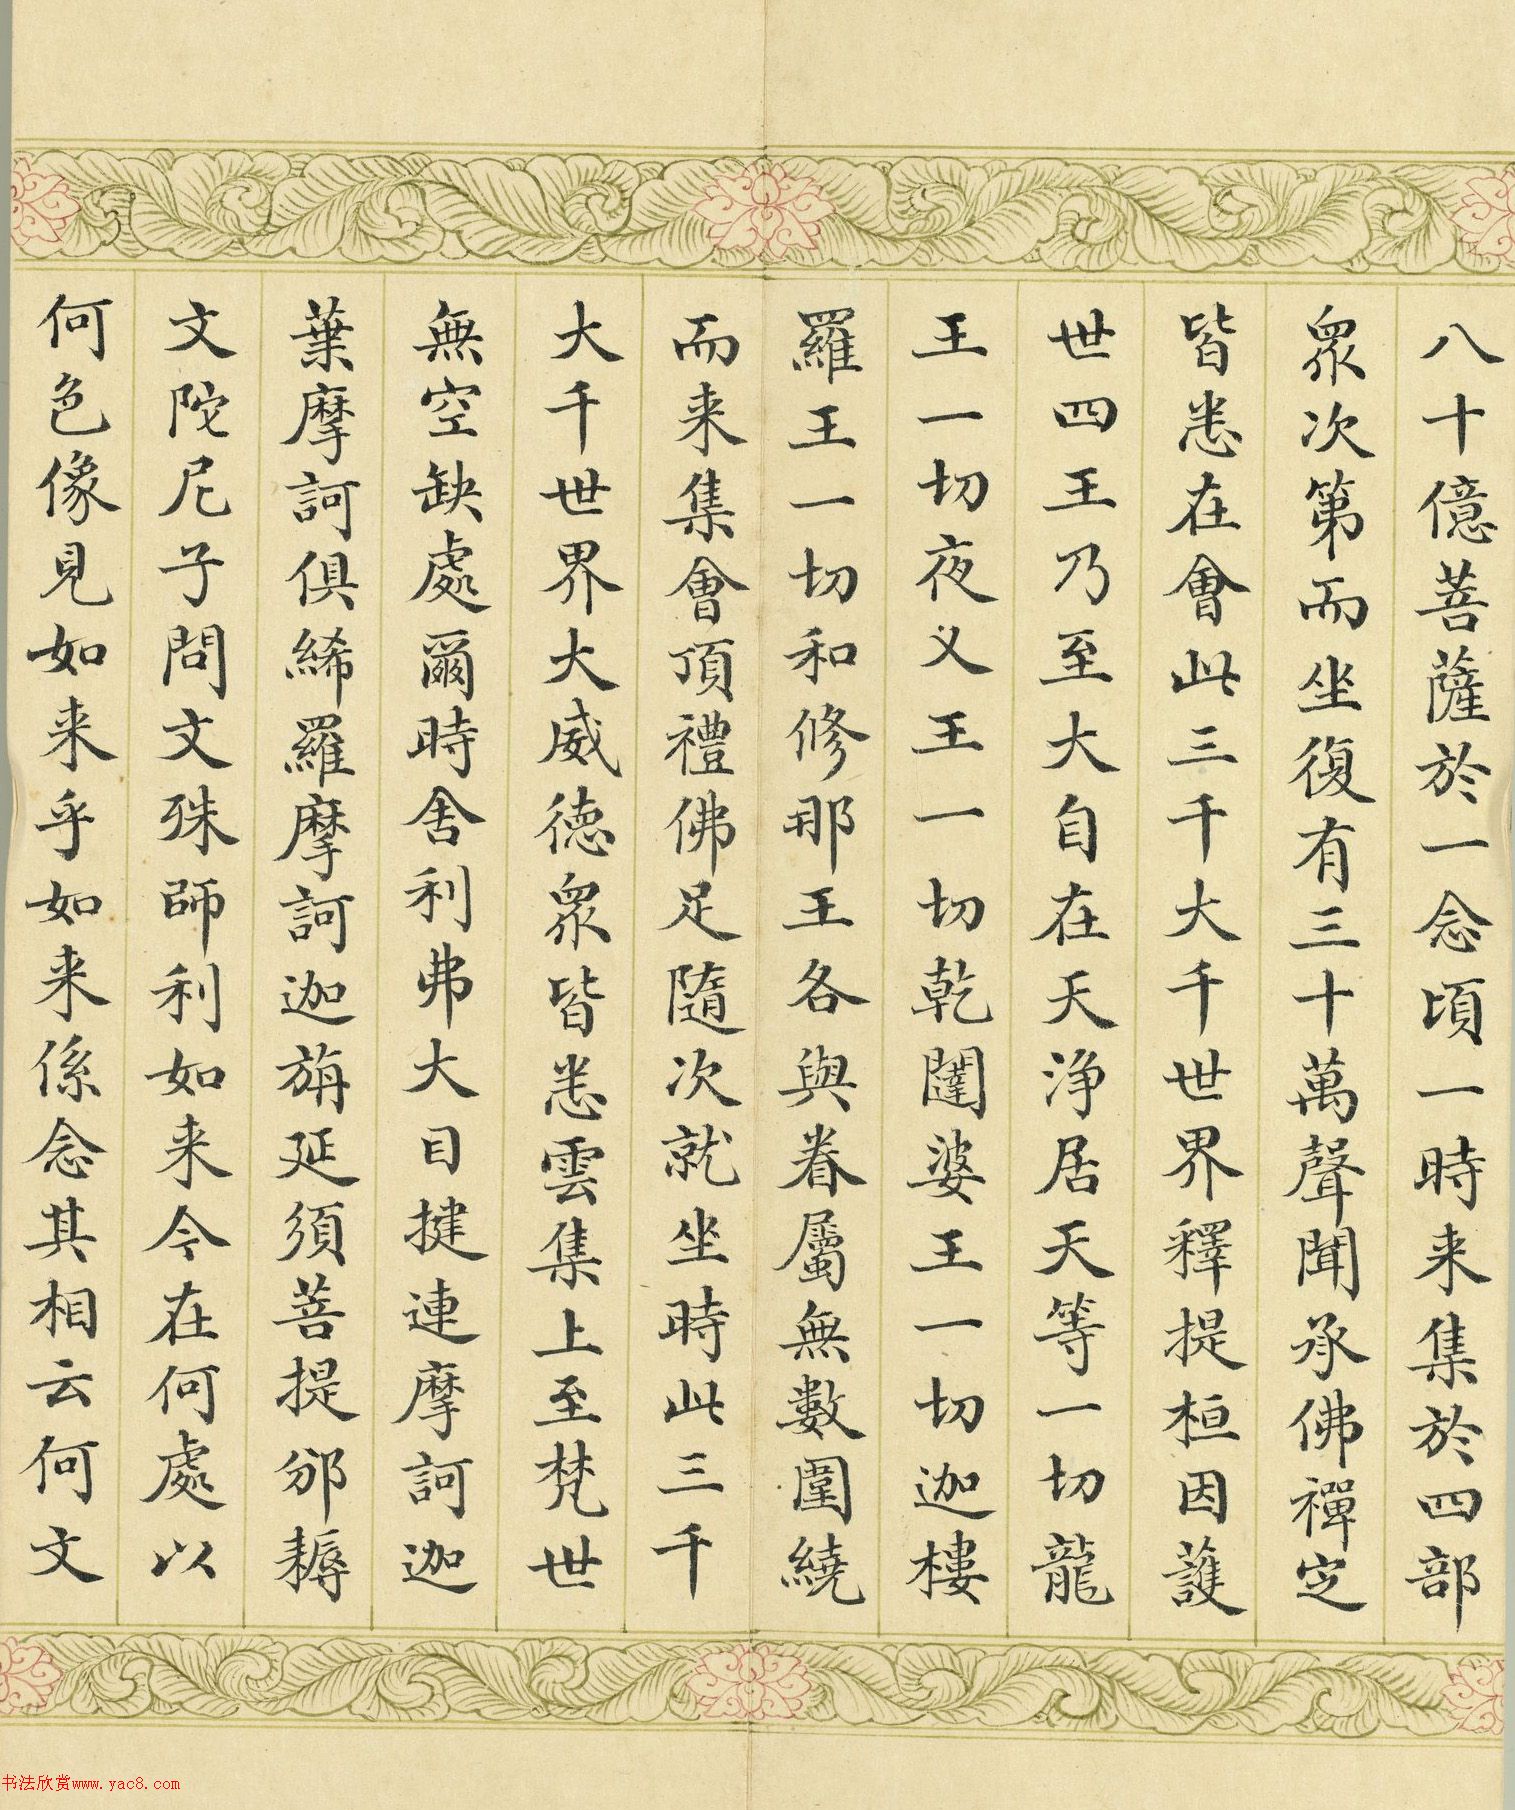 八十億菩薩於一念頃一時来集於四部
眾次第而坐復有三十萬聲聞承佛禪定
皆悉在會此三千大千世界釋提桓因護
世四王乃至大自在天淨居天等一切龍
王一切夜义王一切乾闥婆王一切迦樓
羅王一切和修那王各與眷屬無數圍繞
而来集會頂禮佛足隨次就坐時此三千
大千世界大威德眾皆悉雲集上至梵世
無空缺處爾時舍利弗大目揵連摩訶迦
葉摩訶俱絺羅摩訶迦旃延須菩提邠耨
文陀尼子問文殊師利如来今在何處以
何色像見如来乎如来係念其相云何文
书法欣赏www.yac8.com